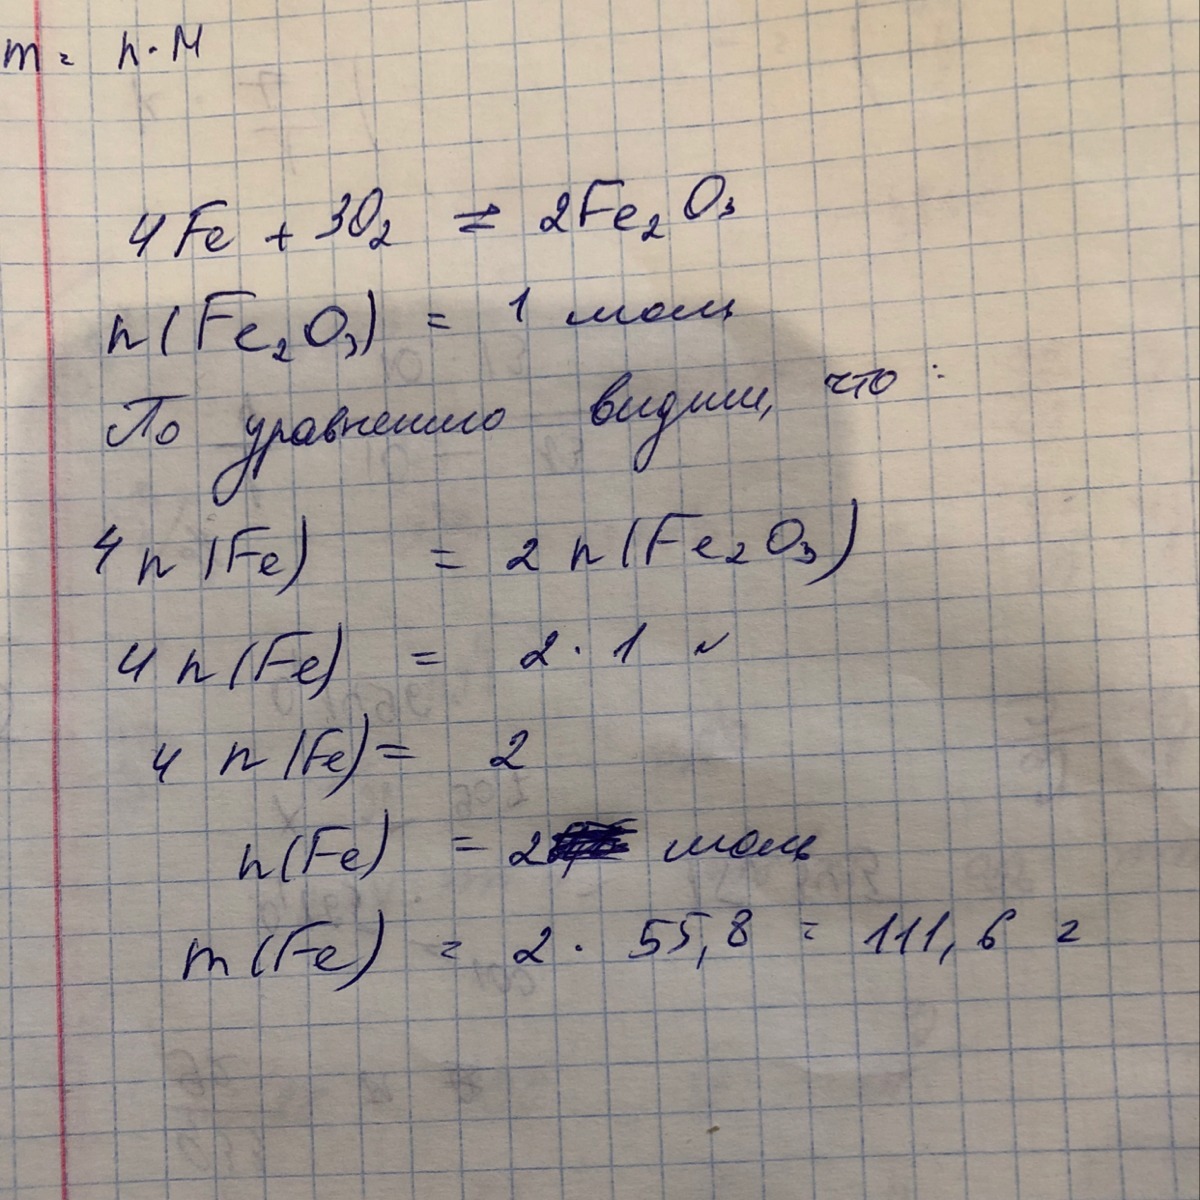 m = n · M
4Fe + 3O₂ ⇌ 2Fe₂O₃
n(Fe₂O₃) = 1 моль
По уравнению видим, что :
4 n (Fe) = 2 n (Fe₂O₃)
4 n (Fe) = 2 · 1
4 n (Fe) = 2
n(Fe) = 2 моль
m (Fe) = 2 · 55,8 = 111,6 г